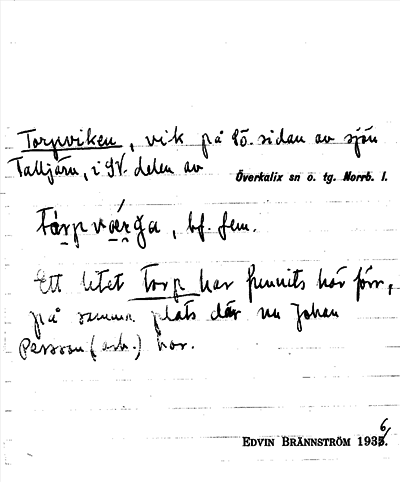 Torpviken, vik på SÖ. sidan av sjön
Talljärn, i SV. delen av
Överkalix sn o. tg. Norrb. l.
tårpvärga, bf. fem.
Ett litet torp har funnits här förr,
på samma plats där nu Johan
Persson (arb.) bor.
EDVIN BRÄNNSTRÖM 1936.